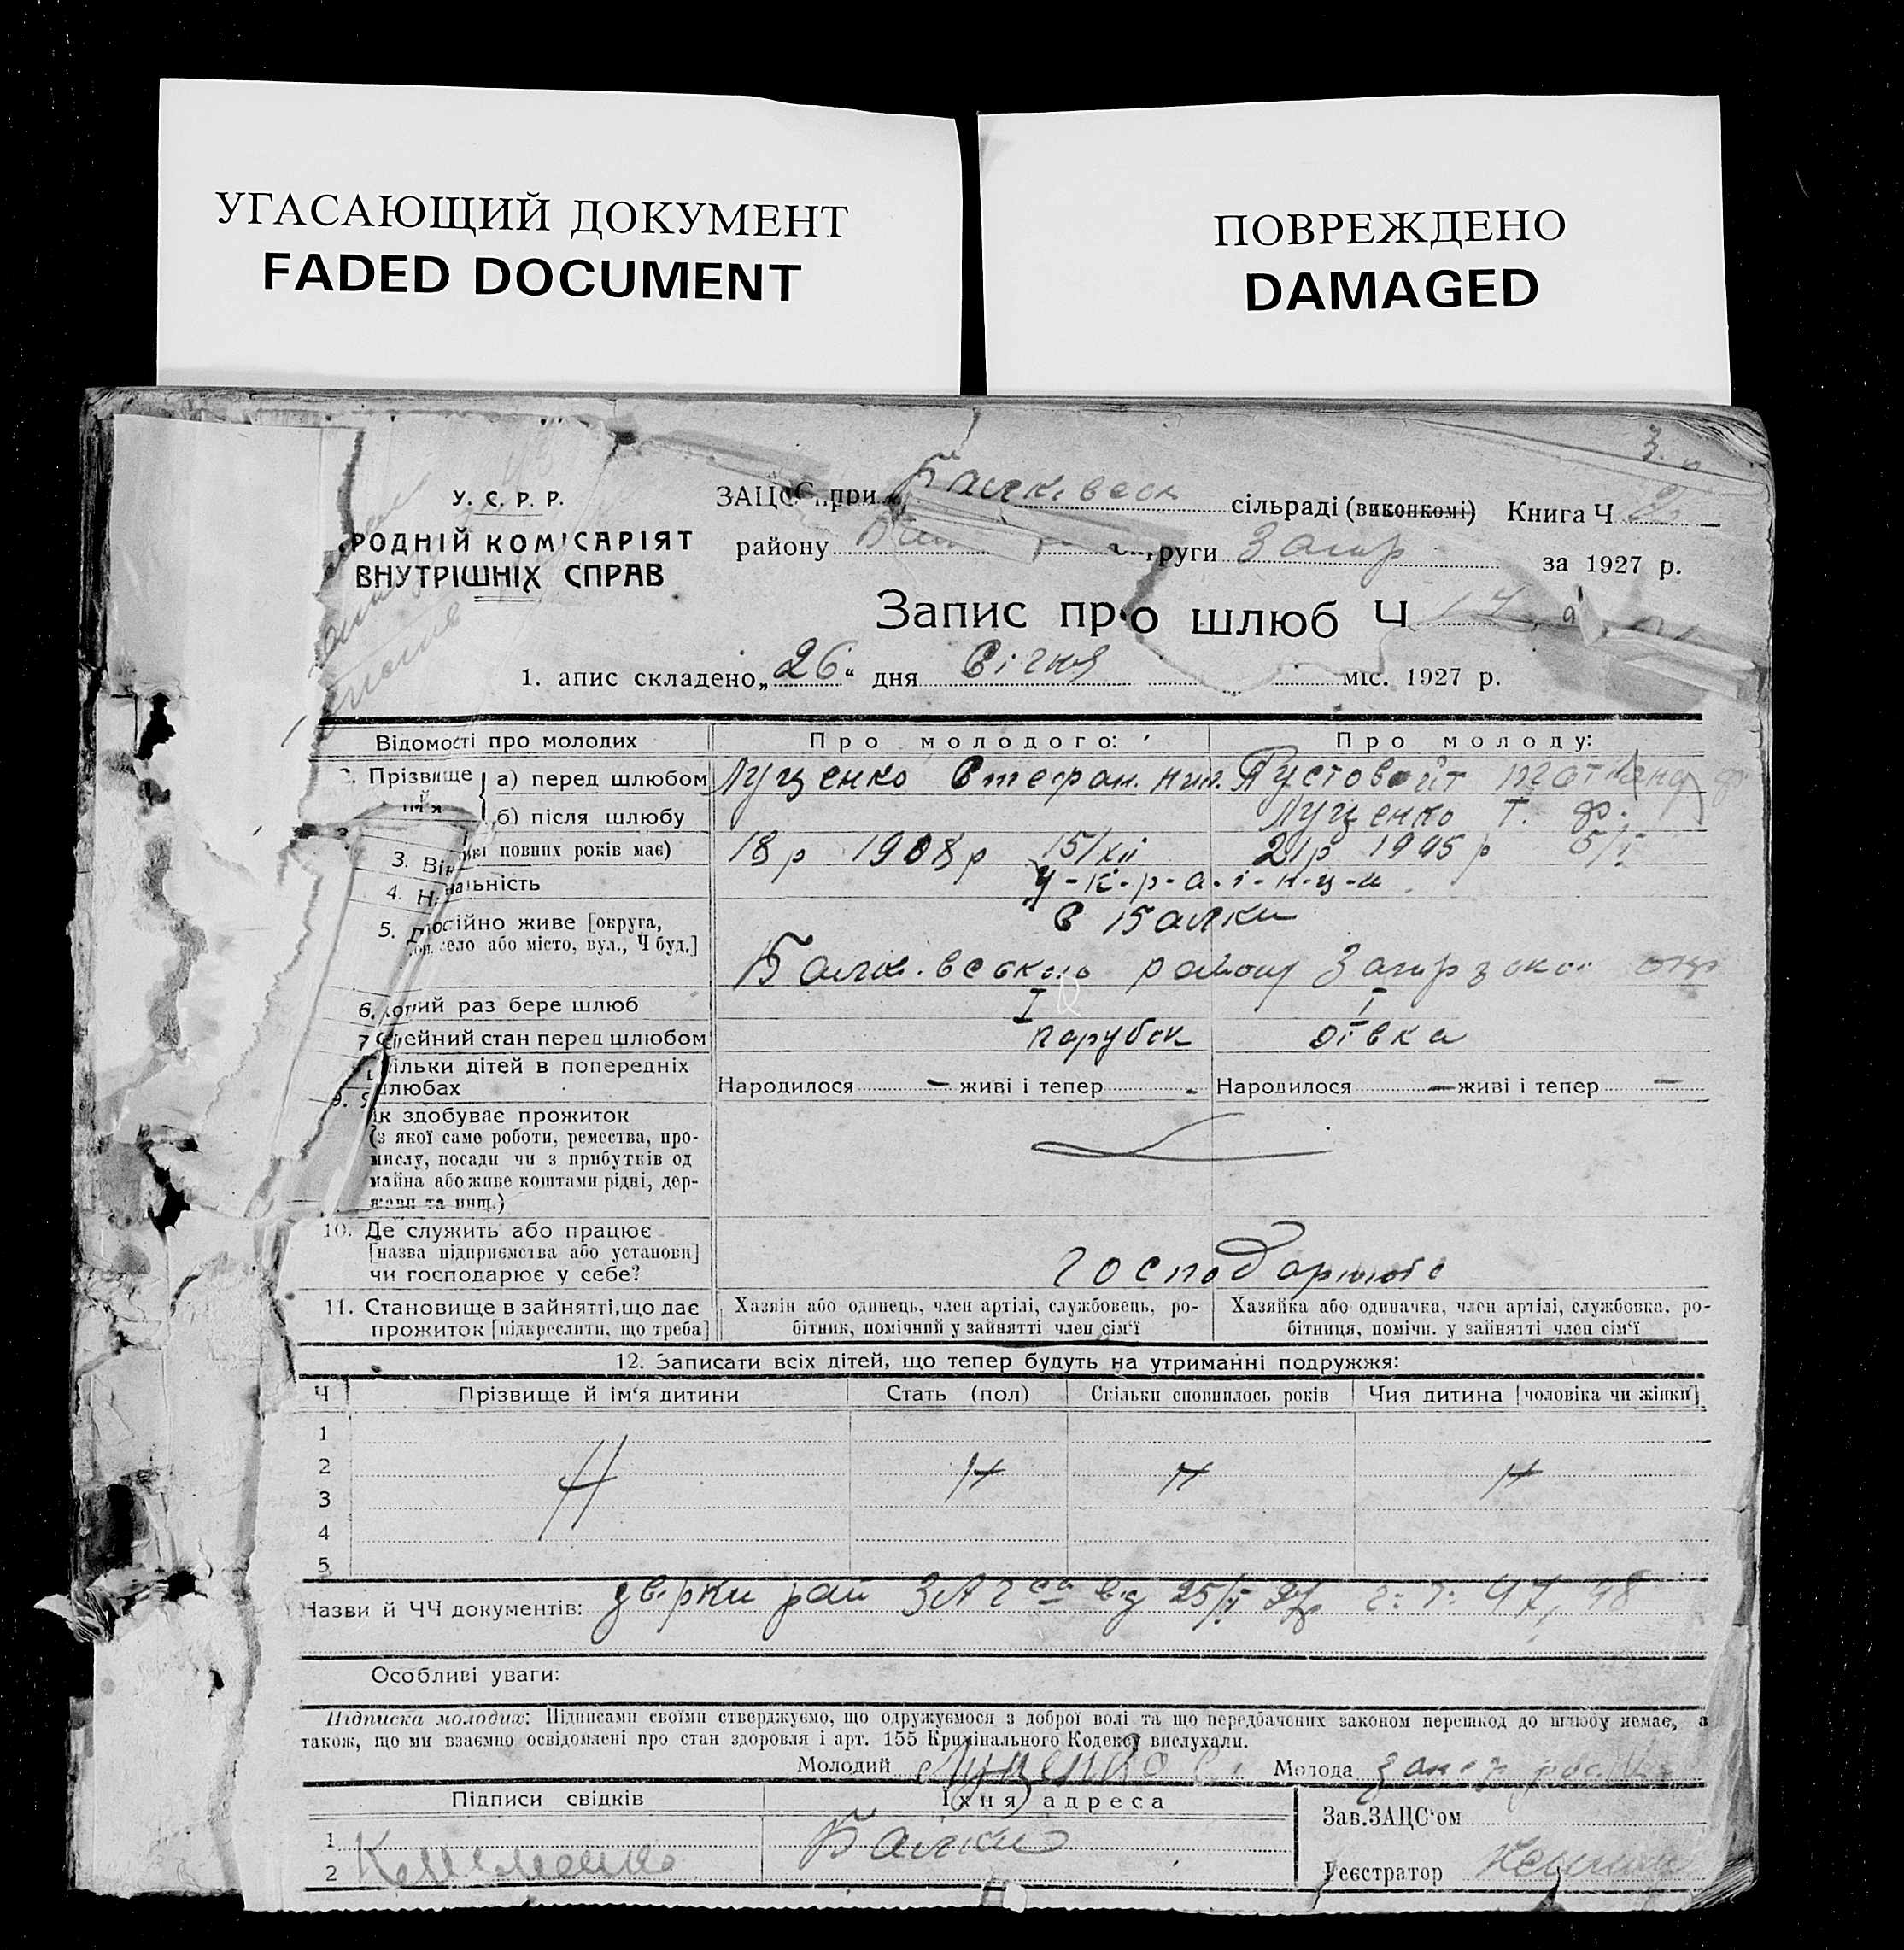 УГАСАЮЩИЙ ДОКУМЕНТ
FADED DOCUMENT
ПОВРЕЖДЕНО
DAMAGED
3.
У. С. Р. Р.
РОДНІЙ КОМІСАРІЯТ
ВНУТРІШНІХ СПРАВ
ЗАЦС при Балківськ сільраді (виконкомі) Книга Ч 2
району округи Запр за 1927 р.
Запис про шлюб Ч
1. апис складено „26“ дня Січня міс. 1927 р.
Відомості про молодих Про молодого: Про молоду:
Прізвище а) перед шлюбом Луценко Стефан. Пустовойт
ім'я б) після шлюбу Луценко Т. Ф.
3. Вік (скі повних років має) 18 р 1908 р 15/XII 21 р 1905 р 5/I
4. Н альність У-к-р-а-ї-н-ц-и
5. Постійно живе [округа, в Балки
село або місто, вул., Ч буд.] Балківського району Запрзької окр
6. Котрий раз бере шлюб I I
7. Сімейний стан перед шлюбом парубок дівка
кільки дітей в попередніх
шлюбах Народилося — живі і тепер - Народилося — живі і тепер —
9. Як здобуває прожиток
(з якої саме роботи, ремества, про-
мислу, посади чи з прибутків од
майна або живе коштами рідні, дер-
жави та инш.)
10. Де служить або працює
[назва підприємства або установи]
чи господарює у себе?
11. Становище в зайнятті, що дає Хазяїн або одинець, член артілі, службовець, ро- Хазяйка або одиначка, член артілі, службовка, ро-
прожиток [підкреслити, що треба] бітник, помічний у зайнятті член сім'ї бітниця, помічн. у зайнятті член сім'ї
12. Записати всіх дітей, що тепер будуть на утриманні подружжя:
Ч Прізвище й ім'я дитини Стать (пол) Скільки сповнилось років Чия дитина [чоловіка чи жінки]
1
2
3
4
5
Назви й ЧЧ документів: рай ЗАГса від 25/I 27р 47, 48
Особливі уваги:
Підписка молодих: Підписами своїми стверджуємо, що одружуємося з доброї волі та що передбачених законом перешкод до шлюбу немає, а
також, що ми взаємно освідомлені про стан здоровля і арт. 155 Кримінального Кодексу вислухали.
Молодий Луценко Молода
Підписи свідків Їхня адреса Зав. ЗАЦС'ом
1 Балки
2 Реєстратор